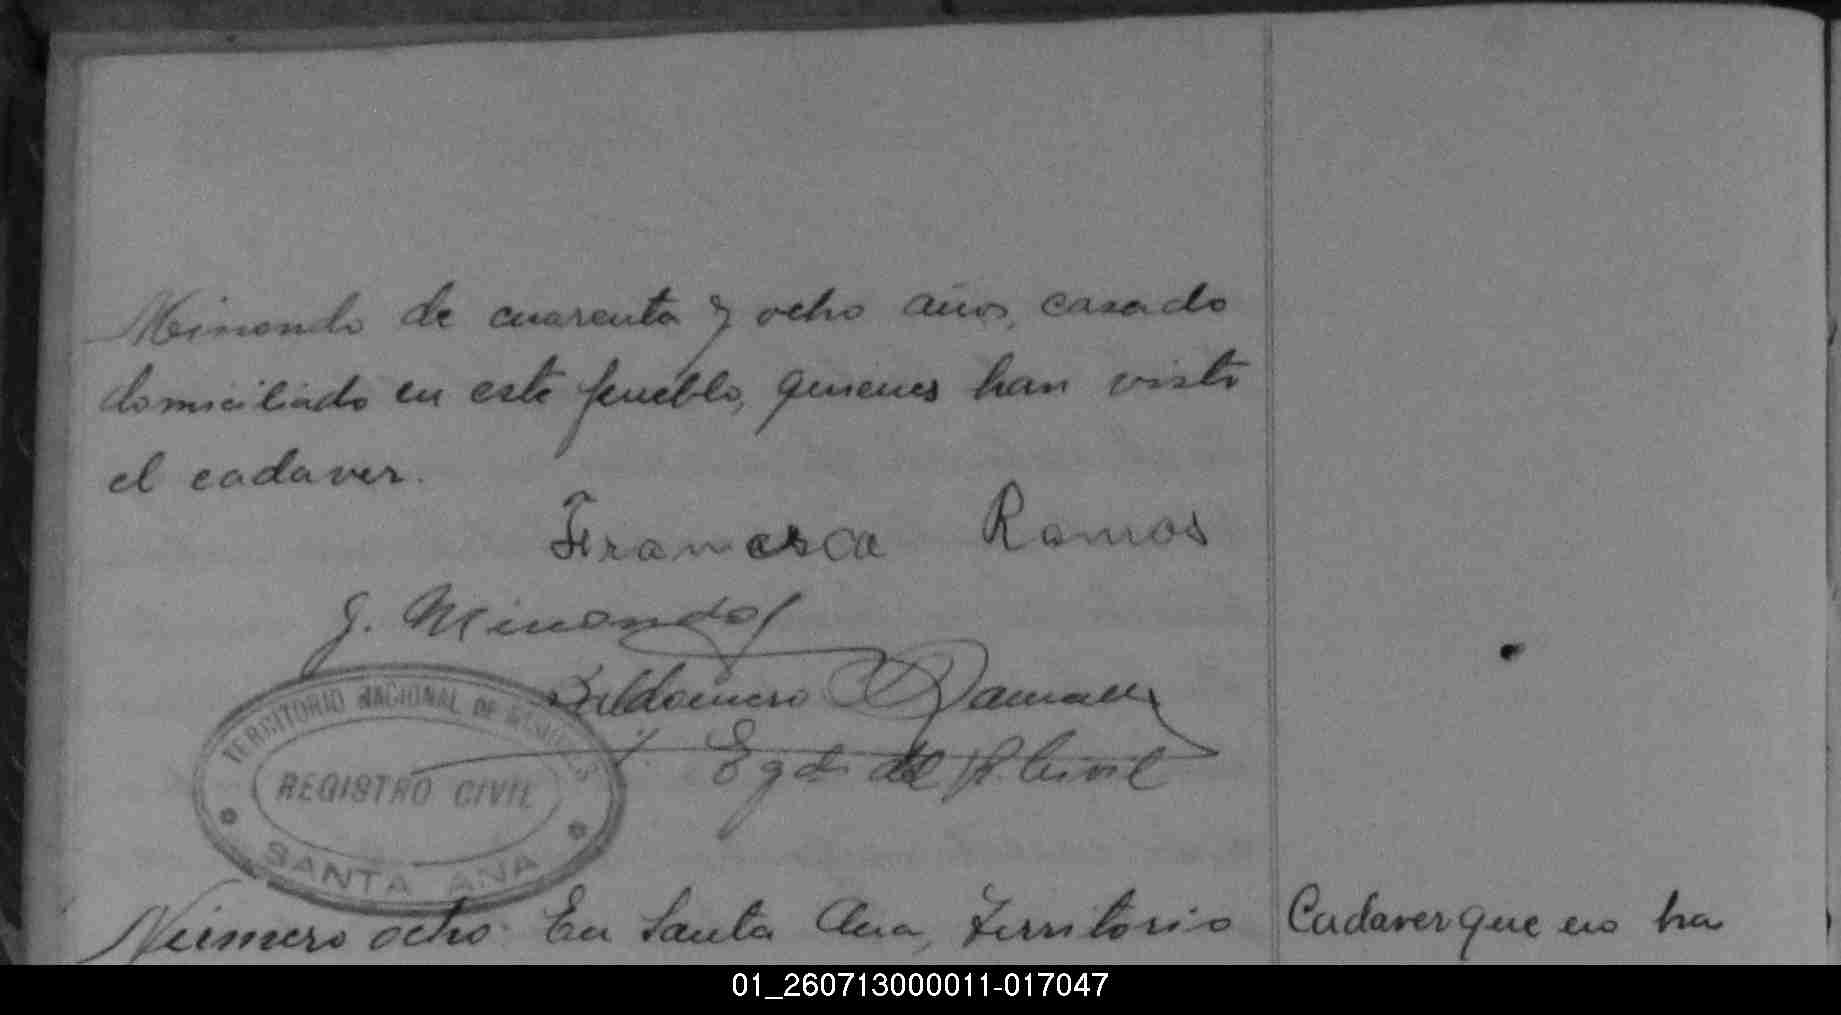 Minondo de cuarenta y ocho años, casado
domiciliado en este pueblo, quienes han visto
el cadaver.
Francisca Ramos
J. Minondo
Baldomero
Egdo del R. Civil
TERRITORIO NACIONAL DE MISIONES
REGISTRO CIVIL
SANTA ANA
Número ocho. En Santa Ana, Territorio
Cadaver que no ha
01_260713000011-017047